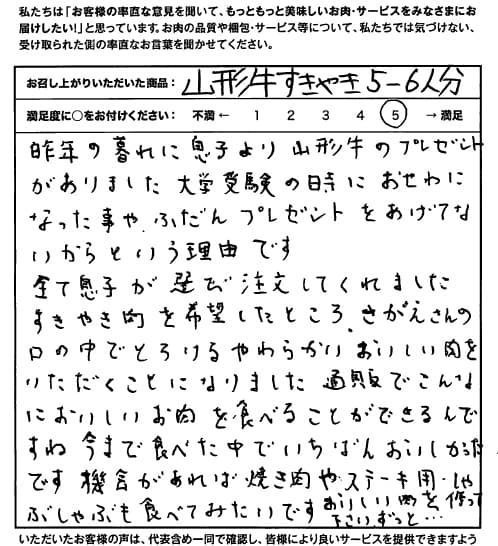 私たちは「お客様の率直な意見を聞いて、もっともっと美味しいお肉・サービスをみなさまにお
届けしたい!」と思っています。お肉の品質や梱包・サービス等について、私たちでは気づけない、
受け取られた側の率直なお言葉を聞かせてください。
お召し上がりいただいた商品: 山形牛すきやき5-6人分
満足度に○をお付けください: 不満 ← 1 2 3 4 5 → 満足
昨年の暮れに息子より山形牛のプレゼント
がありました 大学受験の時におせわに
なった事や、ふだんプレゼントをあげてな
いからという理由です
全て息子が選び注文してくれました
すきやき肉を希望したところ、さがえさんの
口の中でとろけるやわらかい おいしい肉を
いただくことになりました 通販でこんな
においしいお肉を食べることができるんで
すね 今まで食べた中でいちばんおいしかった
です 機会があれば焼き肉やステーキ用・しゃ
ぶしゃぶも食べてみたいです おいしい肉を作って
下さいずっと…
いただいたお客様の声は、代表含め一同で確認し、皆様により良いサービスを提供できますよう